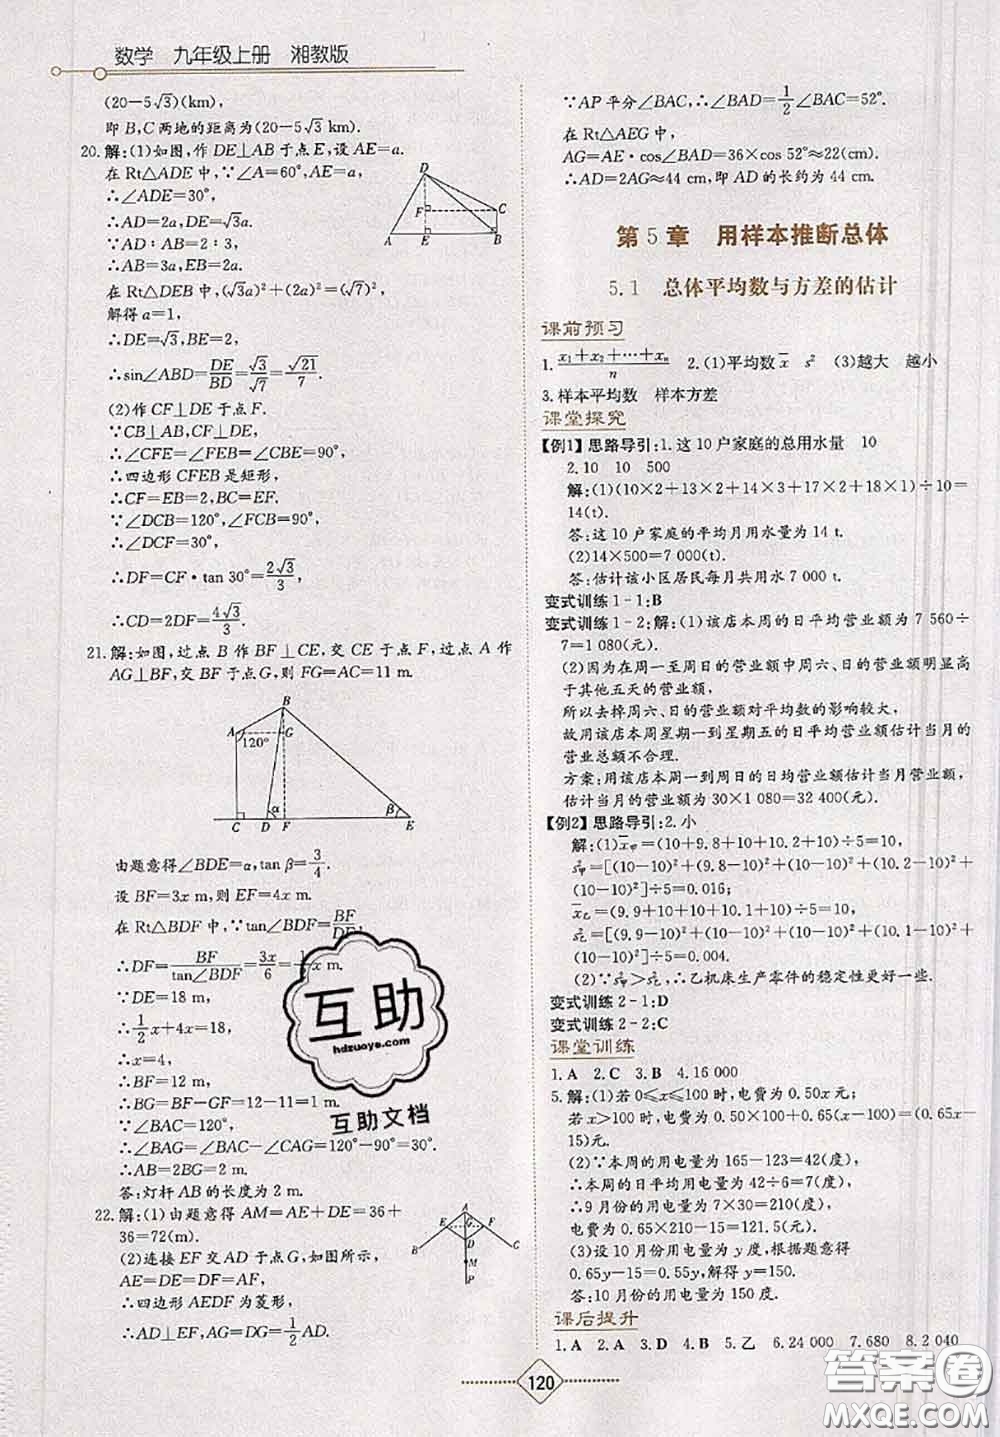 数学 九年级上册 湘教版
(20-5√3)(km),
即B,C两地的距离为(20-5√3 km).
20.解:(1)如图,作DE⊥AB于点E,设AE=a.
在Rt△ADE中,∵∠A=60°,AE=a,
∴∠ADE=30°,
∴AD=2a,DE=√3a.
∵AD∶AB=2∶3,
∴AB=3a,BE=2a.
在Rt△DEB中,(√3a)²+(2a)²=(√7)²,
解得a=1,
∴DE=√3,BE=2,
∴sin∠ABD=DE/BD=√3/√7=√21/7.
(2)作CF⊥DE于点F.
∵CB⊥AB,CF⊥DE,
∴∠CFE=∠FEB=∠CBE=90°,
∴四边形CFEB是矩形,
∴CF=EB=2,BC=EF.
∵∠DCB=120°,∠FCB=90°,
∴∠DCF=30°,
∴DF=CF·tan 30°=2√3/3,
∴CD=2DF=4√3/3.
D
F
C
A
E
B
21.解:如图,过点B作BF⊥CE,交CE于点F,过点A作
AG⊥BF,交BF于点G,则FG=AC=11 m.
B
A
120°
G
α
β
C
D
F
E
由题意得∠BDE=α,tan β=3/4.
设BF=3x m,则EF=4x m.
在Rt△BDF中,∵tan∠BDF=BF/DF,
∴DF=BF/tan∠BDF=3x/6=1/2x m.
∵DE=18 m,
∴1/2x+4x=18,
∴x=4,
∴BF=12 m,
∴BG=BF-GF=12-11=1 m.
∵∠BAC=120°,
∴∠BAG=∠BAC-∠CAG=120°-90°=30°.
∴AB=2BG=2 m.
答:灯杆AB的长度为2 m.
22.解:(1)由题意得AM=AE+DE=36+
36=72(m).
(2)连接EF交AD于点G,如图所示,
AE=DE=DF=AF=36.
∴四边形AEDF为菱形,
∴AD⊥EF,AG=DG=1/2AD.
A
E
G
F
B
D
C
M
P
∵AP平分∠BAC,∴∠BAD=1/2∠BAC=52°.
在Rt△AEG中,
AG=AE·cos∠BAD=36×cos 52°≈22(cm).
∴AD=2AG≈44 cm,即AD的长约为44 cm.
第5章 用样本推断总体
5.1 总体平均数与方差的估计
课前预习
1.(x₁+x₂+…+xₙ)/n 2.(1)平均数x̄ s² (3)越大 越小
3.样本平均数 样本方差
课堂探究
【例1】思路导引:1.这10户家庭的总用水量 10
2.10 10 500
解:(1)(10×2+13×2+14×3+17×2+18×1)÷10=
14(t).
答:这10户家庭的平均月用水量为14 t.
(2)14×500=7 000(t).
答:估计该小区居民每月共用水7 000 t.
变式训练1-1:B
变式训练1-2:解:(1)该店本周的日平均营业额为7 560÷
7=1 080(元).
(2)因为在周一至周日的营业额中周六、日的营业额明显高
于其他五天的营业额,
所以去掉周六、日的营业额对平均数的影响较大,
故用该店本周星期一到星期五的日平均营业额估计当月的
营业总额不合理.
方案:用该店本周一到周日的日均营业额估计当月营业额,
估计当月的营业额为30×1 080=32 400(元).
【例2】思路导引:2.小
解:(1)x̄甲=(10+9.8+10+10.2+10)÷5=10;
s²甲=[(10-10)²+(9.8-10)²+(10-10)²+(10.2-10)²+
(10-10)²]÷5=0.016;
x̄乙=(9.9+10+10+10.1+10)÷5=10;
s²乙=[(9.9-10)²+(10-10)²+(10-10)²+(10.1-10)²+
(10-10)²]÷5=0.004.
(2)∵s²甲>s²乙,∴乙机床生产零件的稳定性更好一些.
变式训练2-1:D
变式训练2-2:C
课堂训练
1.A 2.C 3.B 4.16 000
5.解:(1)若0≤x≤100时,电费为0.50x元;
若x>100时,电费为0.50×100+0.65(x-100)=(0.65x-
15)元.
(2)∵本周的用电量为165-123=42(度),
∴本周的日平均用电量为42÷6=7(度),
∴9月份的用电量为7×30=210(度),
电费为0.65×210-15=121.5(元).
(3)设10月份用电量为y度,根据题意得
0.65y-15=0.55y,解得y=150.
答:10月份的用电量为150度.
课后提升
1.A 2.A 3.D 4.B 5.乙 6.24 000 7.680 8.2 040
120
互助
hdzuoye.com
互助文档
答案圈
MXQE.COM